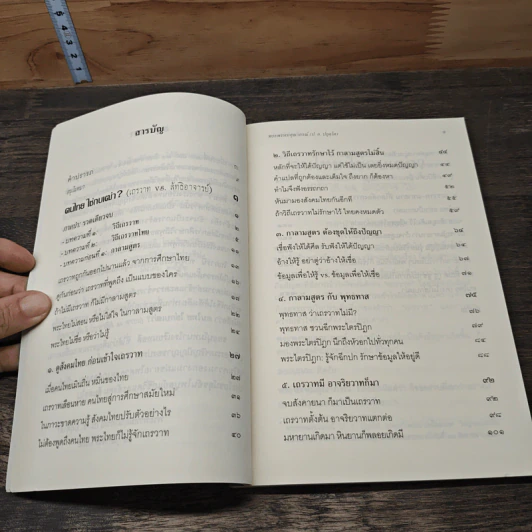 สารบัญ
คนไทย ใช่กบเฒ่า? (เถรวาท v.s. ลัทธิอาจารย์) ๑
- บทความที่ ๑: วิถีเถรวาท
- บทความที่ ๒: วิถีเถรวาทไทย
- บทความก่อนที่ ๑: กาลามสูตร
เถรวาทถูกกันออกไปนานแล้ว จากการศึกษาไทย
ดูกันก่อนว่า เถรวาทที่พูดถึง เป็นแบบของใคร
ถ้าไม่มีเถรวาท ก็ไม่มีกาลามสูตร ๑๘
พระไทยไม่สอน หรือไม่ใส่ใจ ในกาลามสูตร
พระไทยไม่เชื่อ หรือว่าไม่รู้ ๒๔
๑. ดูสังคมไทย ก่อนเข้าใจเถรวาท ๒๗
เมื่อคนไทยเมินถิ่น หมิ่นของไทย ๒๘
เถรวาทเลือนหาย คนไทยสู่การศึกษาสมัยใหม่
ในภาวะขาดความรู้ สังคมไทยปรับตัวอย่างไร ๓๖
ไม่ต้องพูดถึงคนไทย พระไทยก็ไม่รู้จักเถรวาท ๔๐
๒. วิถีเถรวาทรักษาไว้ กาลามสูตรไม่สิ้น ๔๕
หลักที่จะให้ได้ปัญญา แต่ใช้ไม่เป็น เลยยิ่งหมดปัญญา
คำแปลที่ถูกต้องและเต็มใจ ถึงยาก ก็ต้องหา
ทำไมจึงฟังอรรถกถา
หันมามองสังคมไทยกันอีกที
ถ้าวิถีเถรวาทไม่รักษาไว้ ไทยคงหมดตัว ๕๙
๓. กาลามสูตร ต้องชุดให้ถึงปัญญา ๖๔
เชื่อฟังให้ได้คิด รับฟังให้ได้ปัญญา
อ้างให้รู้ อย่าดูว่าอ้างให้เชื่อ
ข้อมูลเพื่อให้รู้ v.s. ข้อมูลเพื่อให้เชื่อ
๔. กาลามสูตร กับ พุทธทาส ๗๕
พุทธทาส ว่าเถรวาทไม่มี?
พุทธทาส ชวนฉีกพระไตรปิฎก
มองพระไตรปิฎก นึกถึงหัวอกไปทั่วทุกคน
พระไตรปิฎก: รู้จักฉีกปก รักษาข้อมูลให้อยู่ดี ๘๘
๕. เถรวาทมี อาจริยวาทก็มา ๙๒
จบสังคายนา ก็มาเป็นเถรวาท ๙๒
เถรวาทตั้งต้น อาจริยวาทแตกต่อ ๙๘
มหายานเกิดมา หินยานก็พลอยเกิดมี ๑๐๑